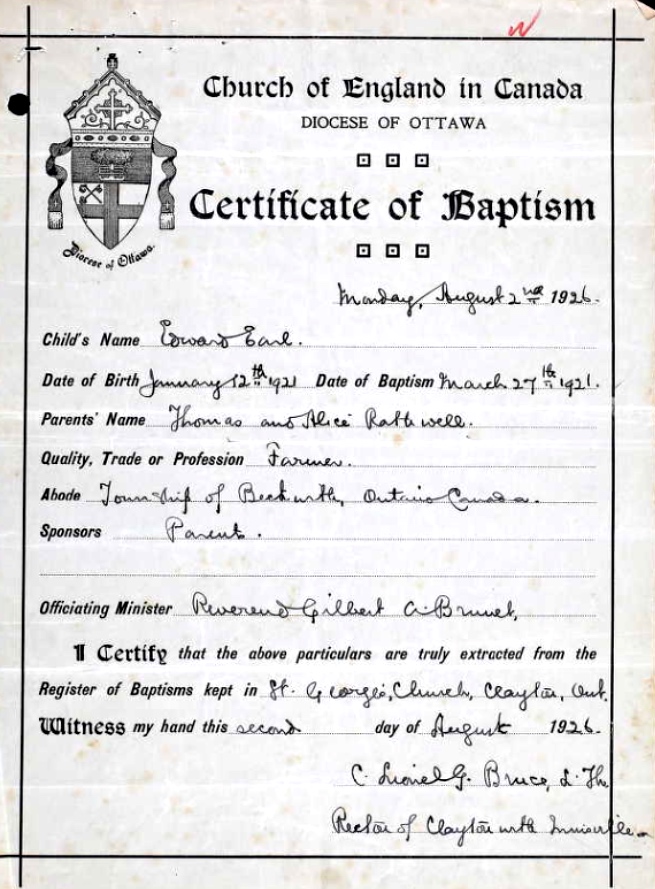 Church of England in Canada
DIOCESE OF OTTAWA
Certificate of Baptism
Diocese of Ottawa.
Monday, August 2nd 1926.
Child's Name Edward Earl.
Date of Birth January 12th 1921 Date of Baptism March 27th 1921.
Parents' Name Thomas and Alice Rathwell.
Quality, Trade or Profession Farmer.
Abode Township of Beckwith, Ontario Canada.
Sponsors Parents.
Officiating Minister Reverend Gilbert A. Brunet,
I Certify that the above particulars are truly extracted from the
Register of Baptisms kept in St. George's, Church, Clayton, Ont.
Witness my hand this second day of August 1926.
C. Lionel G. Bruce, L. Th.
Rector of Clayton with Innisville.